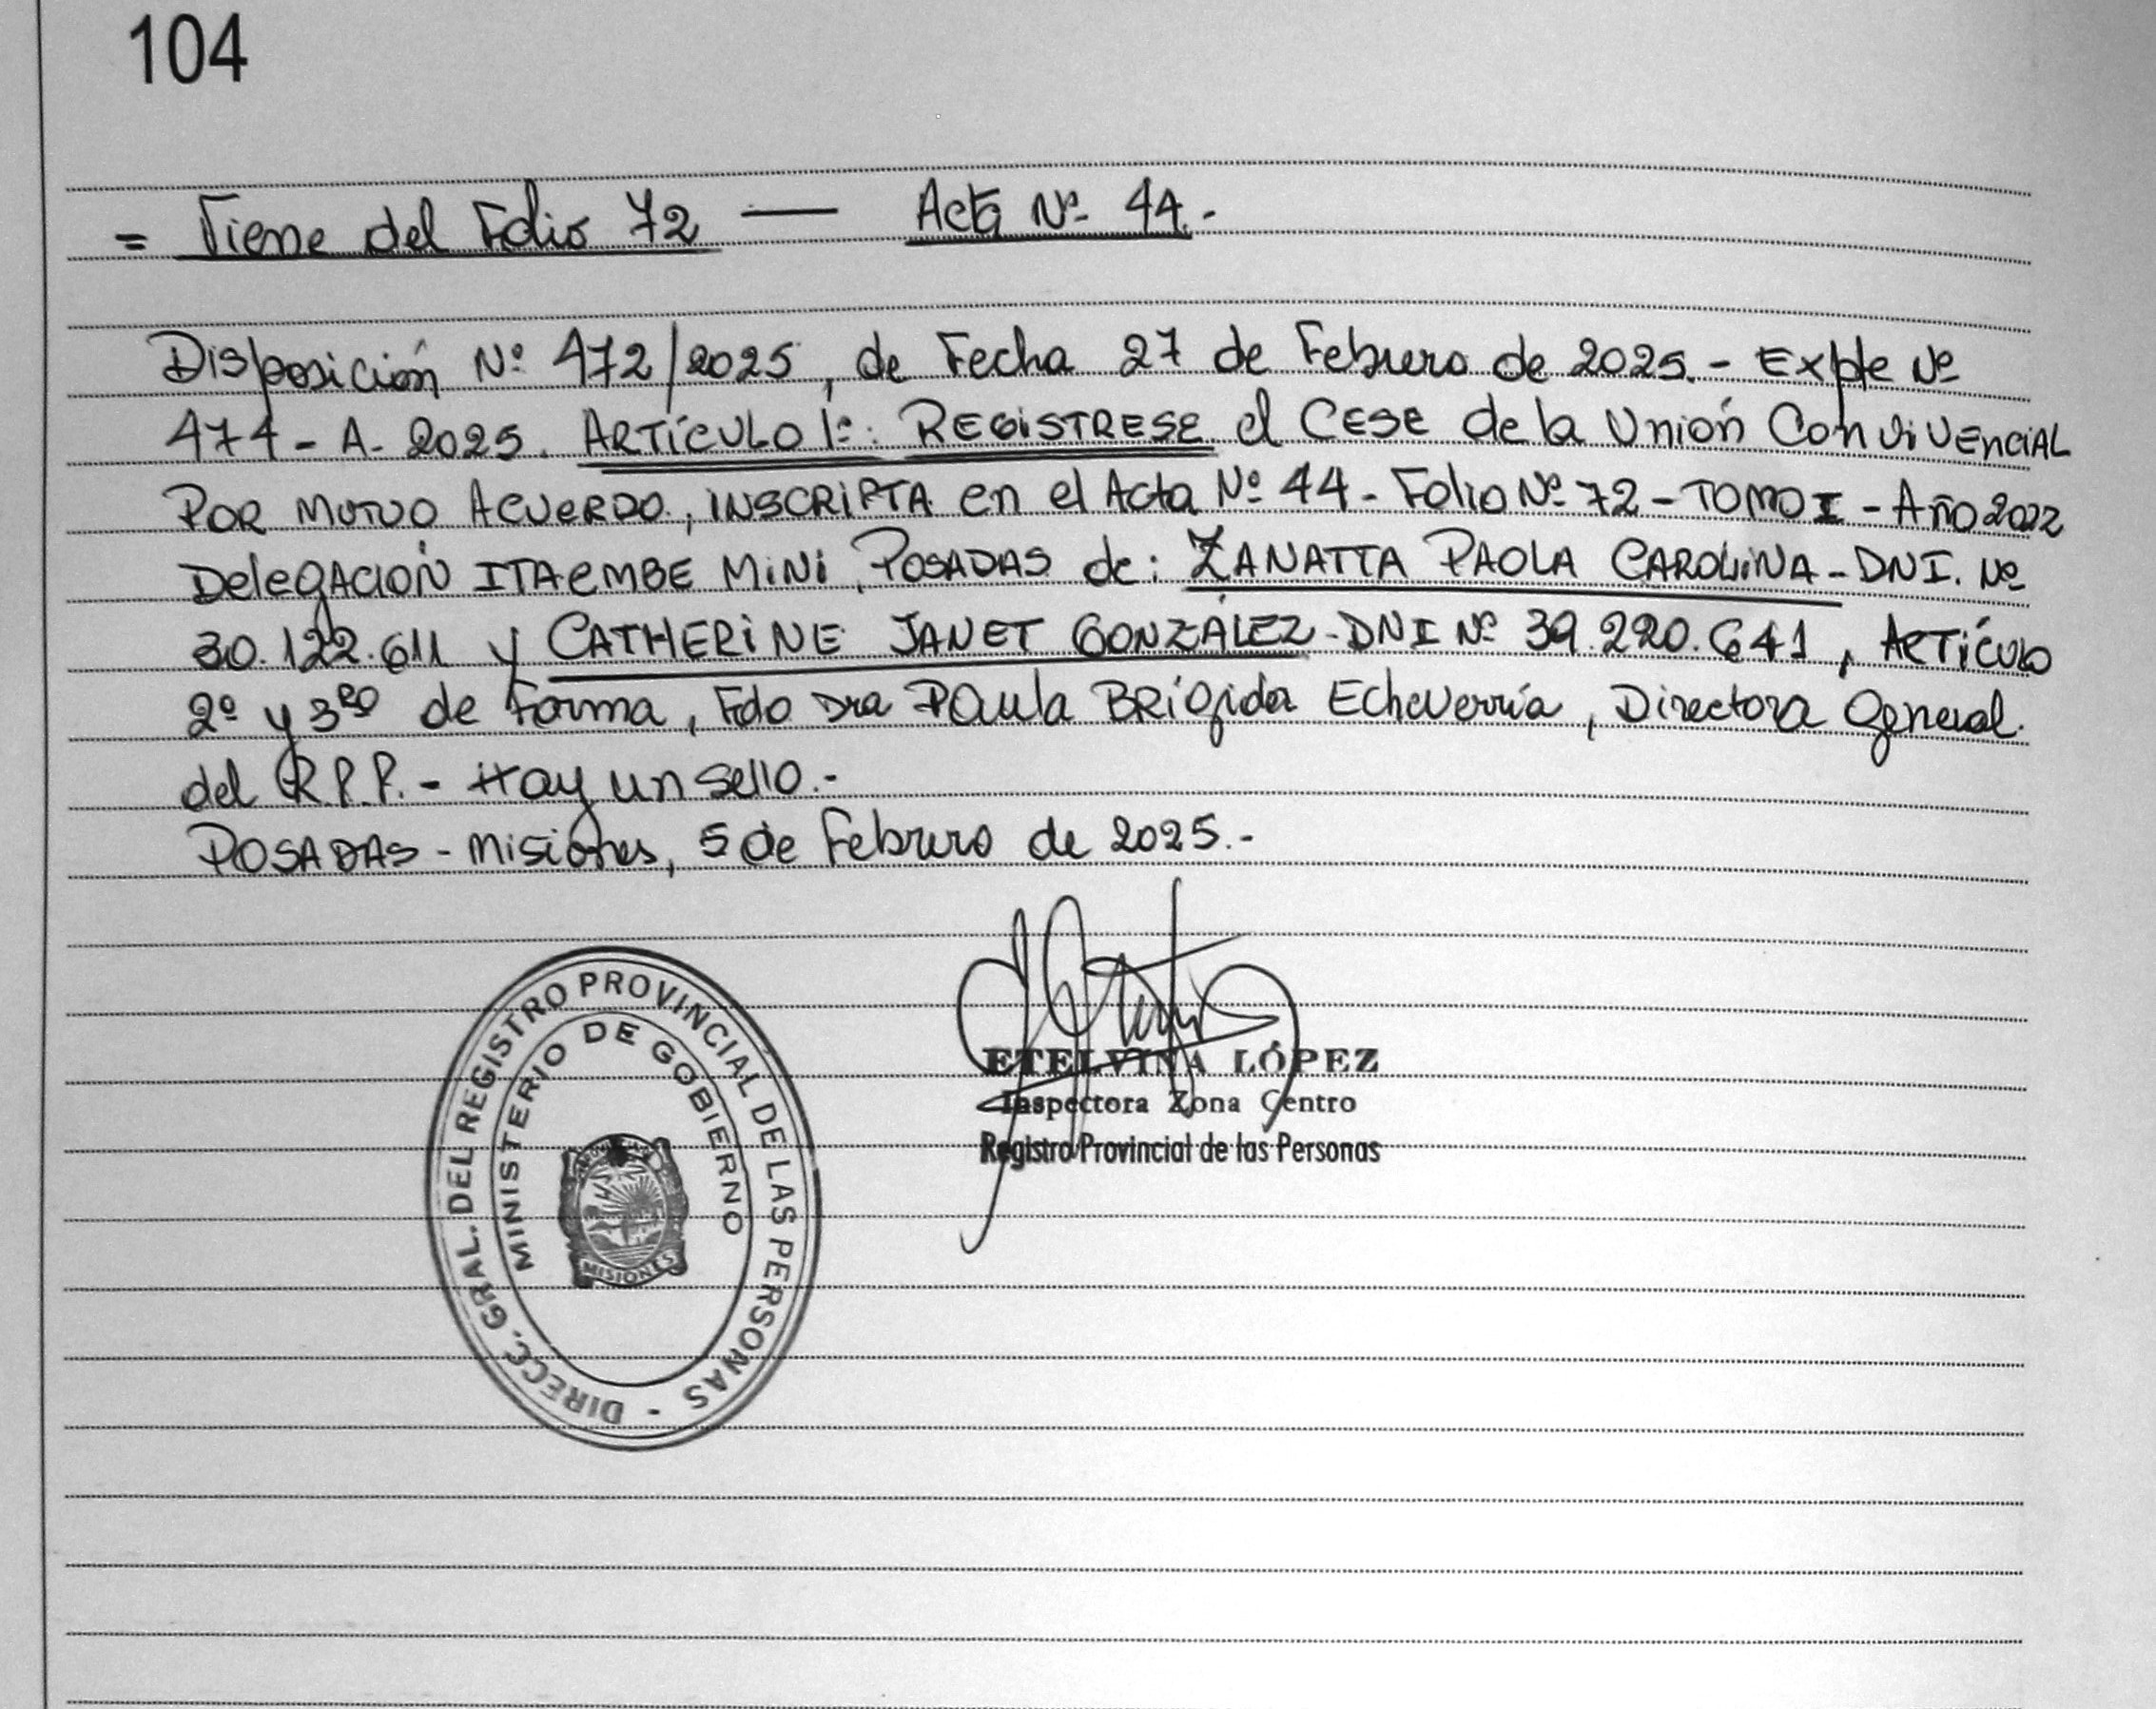 104
= Viene del Folio 72 — Acta Nº 44.-
Disposición Nº 472/2025, de Fecha 27 de Febrero de 2025.- Expte Nº
474-A-2025. ARTÍCULO 1º: REGISTRESE el CESE de la Unión ConviVEnciAL
POR MUTUO ACUERDO, INSCRIPTA en el Acta Nº 44-Folio Nº 72-TOMO I-AÑO 2022
DelegACIÓN ITAEMBE MINI, POSADAS de: ZANATTA PAOLA CAROLINA-DNI. Nº
30.122.611 y CATHERINE JANET GONZÁLEZ-DNI Nº 39.220.641, ARTÍCULO
2º y 3RO de Forma, Fdo Dra PAula BRígida Echeverría, Directora General
del R.P.P.- Hay un sello.-
POSADAS-Misiones, 5 de Febrero de 2025.-
DIRECC. GRAL. DEL REGISTRO PROVINCIAL DE LAS PERSONAS -
MINISTERIO DE GOBIERNO
MISIONES
ETELVINA LÓPEZ
Inspectora Zona Centro
Registro Provincial de las Personas